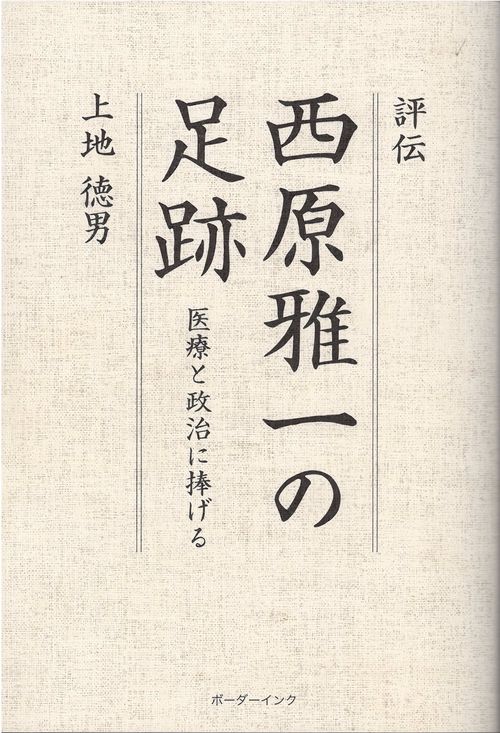 評伝
西原雅一の
足跡
医療と政治に捧げる
上地 徳男
ボーダーインク